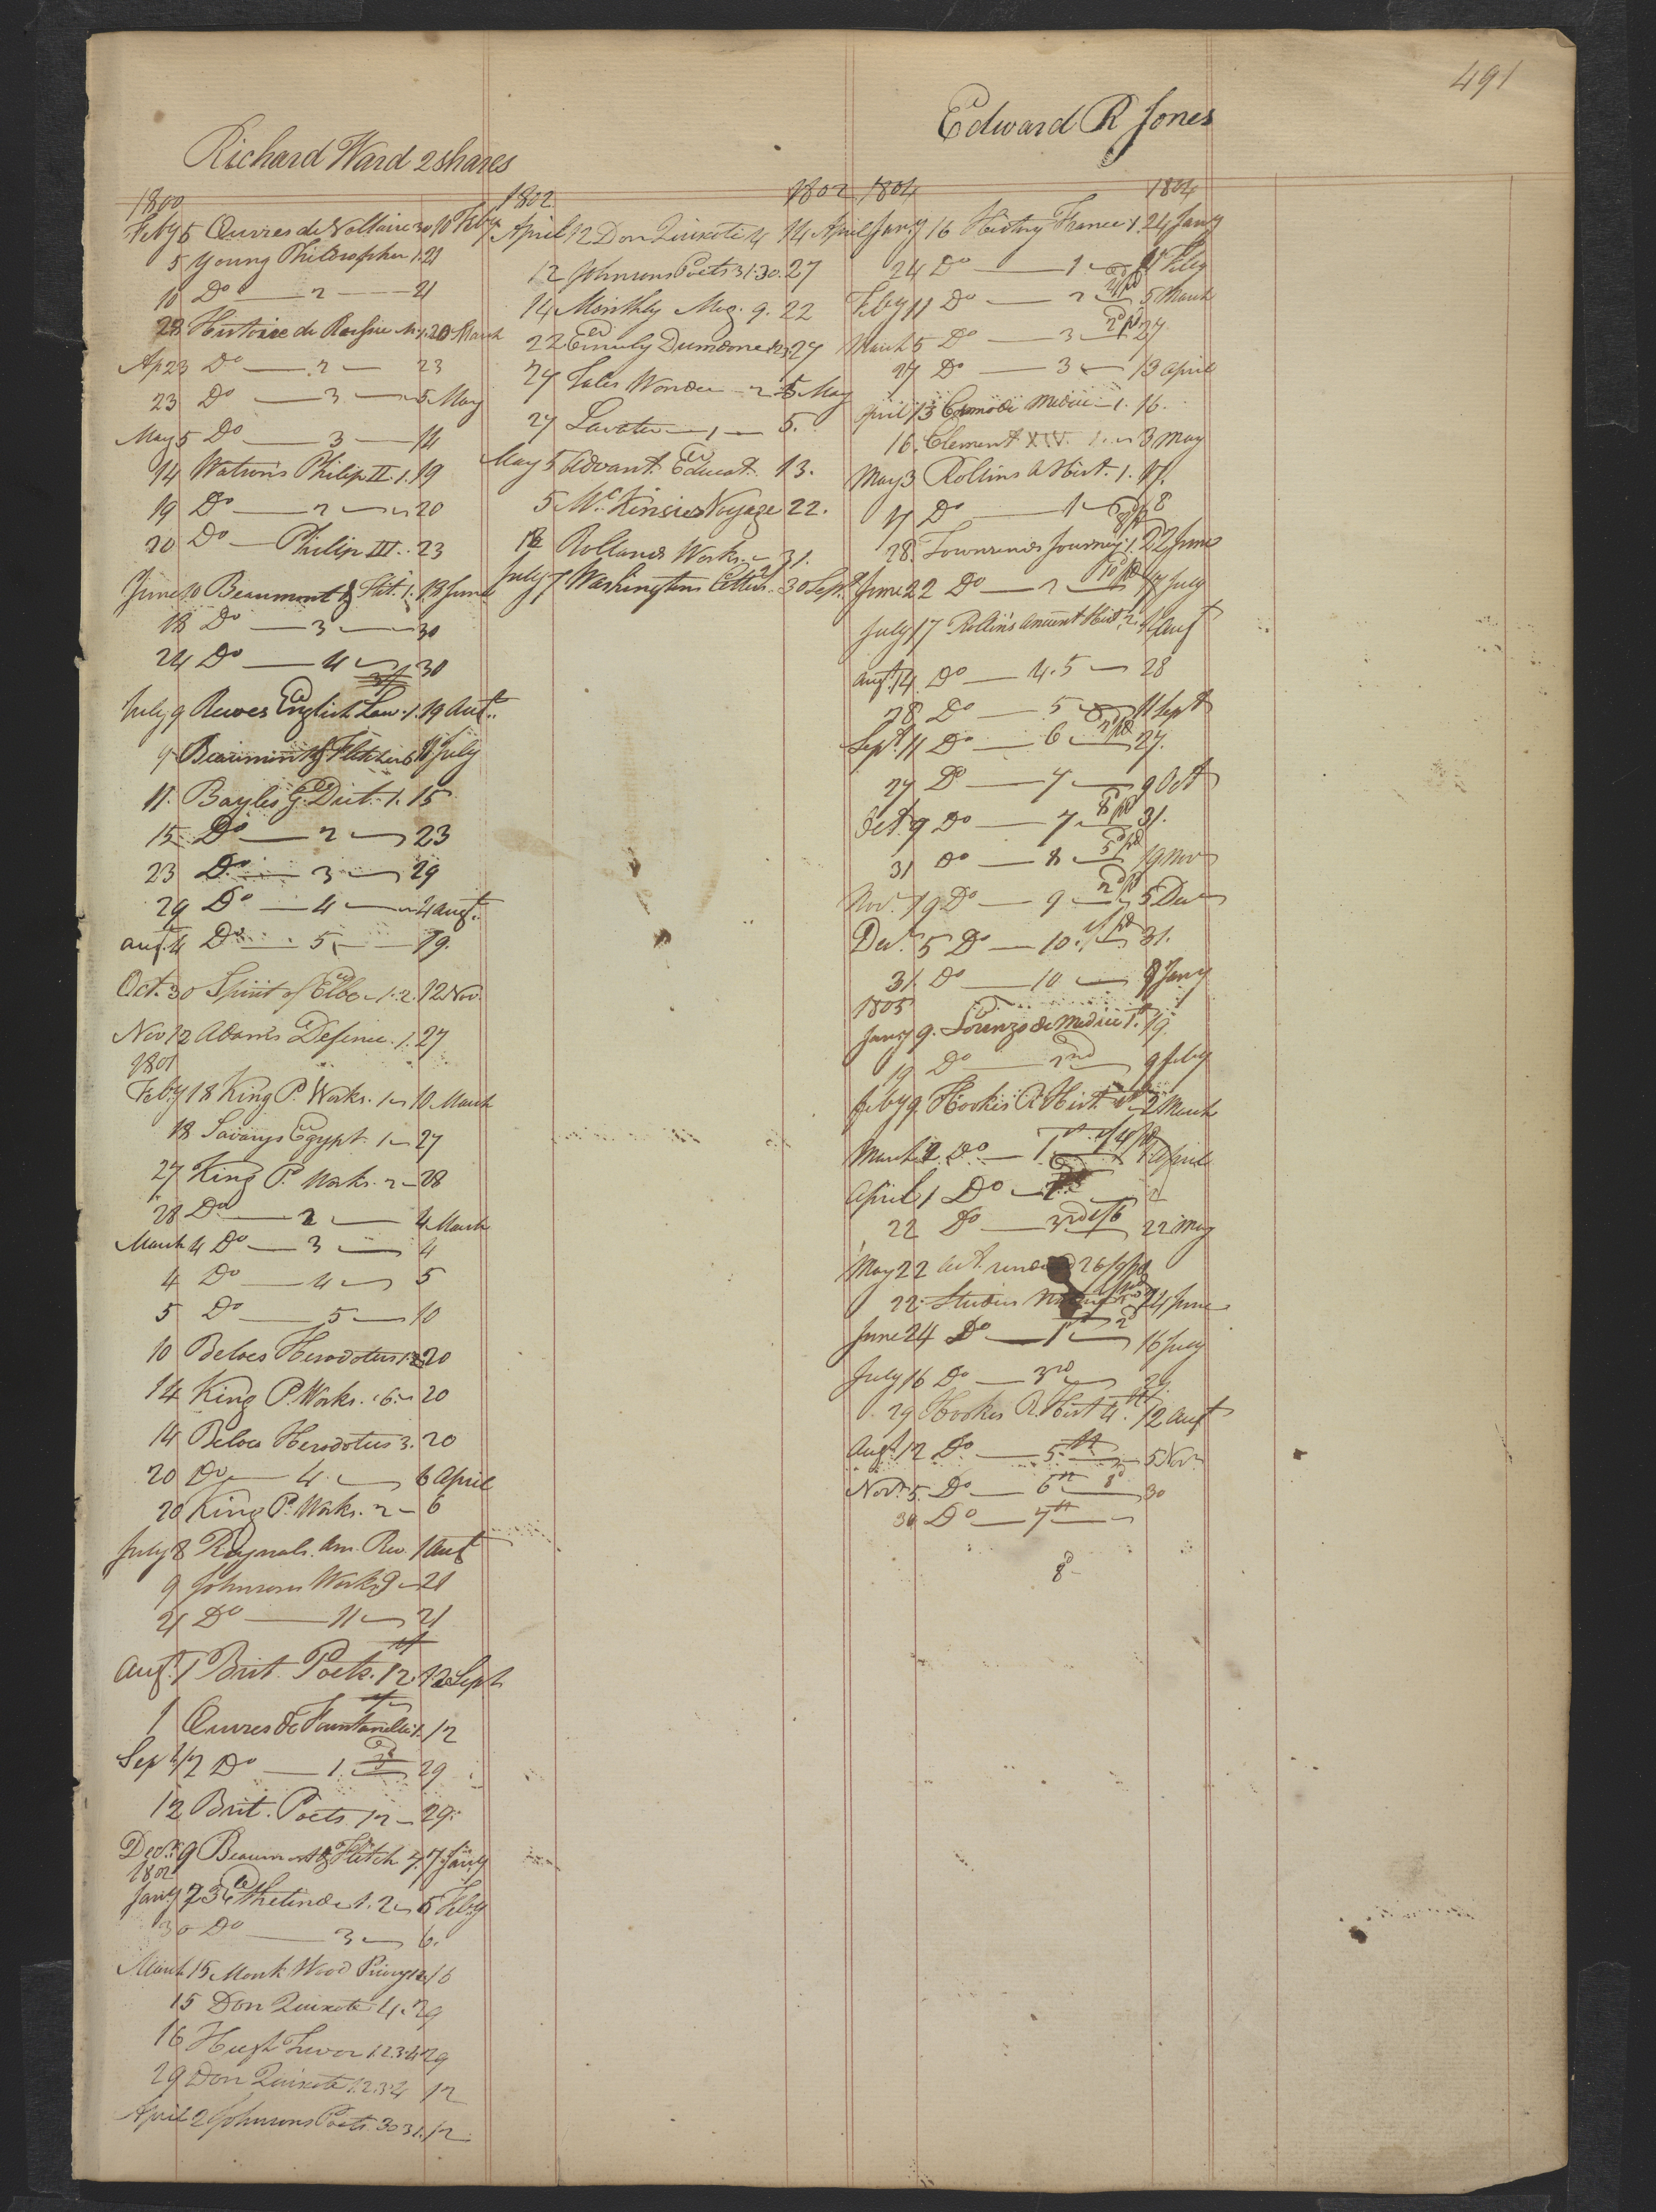 491
Richard Ward 2 shares
1800
Feby 5 Œuvres de Voltaire 30 10 Feby
5 Young Philosopher 1. 21
10 Do — 2 — 21
28 Histoire de Russie 20 March
Ap 23 Do — 2 — 23
23 Do — 3 — 5 May
May 5 Do — 3 — 14
14 Watson's Philip II. 1. 19
19 Do — 2 — 20
20 Do — Philip III. 23
June 10 Beaumont & Flet. 1. 18 June
18 Do — 3 — 30
24 Do — 4 — 30
July 9 Reeves English Law. 1. 19 Aut.
9 Beaumont & Fletcher 6 11 July
11. Bayles G. Dict. 1. 15
15 Do — 2 — 23
23 Do — 3 — 29
29 Do — 4 — 4 Augt.
Augt. 4 Do — 5 — 19.
Oct. 30 Spirit of Elbe 1. 2. 12 Nov.
Nov 12 Adams Defence. 1. 27
1801
Feby 18 King P. Works. 1 10 March
18 Savarys Egypt. 1 — 27
27 King P. Works. 2 — 28
28 Do — 2 — 4 March
March 4 Do — 3 — 4
4 Do — 4 — 5
5 Do — 5 — 10
10 Beloes Herodotus 1. 2. 20
14 King P. Works. 6. 20
14 Beloes Herodotus 3. 20
20 Do — 4. — 6 April
20 King P. Works. 2 — 6
July 8 Raynals. Am. Rev. 1 Aut
9 Johnsons Works 9 — 21
21 Do — 11 — 21
Augt. 1 Brit. Poets. 12. 12 Sept
1 Œuvres de Fountanelle 1. 12
Sept 12 Do — 1. 29
12 Brit. Poets. 12 — 29.
Decr. 9 Beaumont & Fletch 7. 7 Jany
1802
Jany 23 Ethelinde 1. 2 6 Feby
30 Do — 3 — 6.
March 15 Monk Wood Priory 12 16
15 Don Quixote 4. 29
16 Hugh Trevor 1. 2. 3. 4 29
29 Don Quixote 1. 2. 3. 4 12
April 2 Johnsons Poets 30 31. 12
1802 1802
April 12 Don Quixote 4 14 April
12 Johnsons Poets 31. 30. 27
14 Monthly Mag. 9. 22
22 Emily Dumorne 27
27 Tales Wonder — 2 5 May
27 Lavater — 1 — 5.
May 5 Advant. Educat. 13.
5 Mc. Kinsies Voyage 22.
18 Rollands Works. 31.
July 7 Washingtons Letters. 30 Sept.
Edward R Jones
1804 1804
Jany 16 History France 1. 24 Jany
24 Do — 1 — 11 Feby
Feby 11 Do — 2 — 5 March
March 5 Do — 3 — 27
27 Do — 3 — 13 April
April 13 Cosmo de Medici — 1. 16.
16. Clement XIV. 1. 3 May
May 3 Rollins A Hist. 1. 17.
17 Do — 1 — 28
28. Townsends Journey 1. 22 June
June 22 Do — 2 — 17 July
July 17 Rollins Ancient Hist. 2. 14 Augt
Augt. 14. Do — 4. 5 — 28
28 Do — 5 — 11 Sept
Sept. 11 Do — 6 — 27.
27 Do — 7 — 9 Oct
Oct. 9 Do — 7 — 31.
31 Do — 8 — 19 Nov
Nov. 19 Do — 9 — 5 Dec
Decr. 5 Do — 10. — 31.
31. Do — 10 — 9 Jany
1805
Jany 9. Lorenzo de Medici 1st. 19.
19 Do — 2nd — 9 Feby
Feby 9. Hookes R Hist. 2 March
March 2. Do — 1 April
April 1 Do —
22 Do — 3rd — 22 May
May 22
22. 24 June
June 24 Do — 16 July
July 16 Do — 3rd 29
29 Hookes R. Hist 4th. 12 Augt
Augt. 12 Do — 5th — 5 Nov
Novr. 5. Do — 6th — 30
30 Do — 7th —
8d